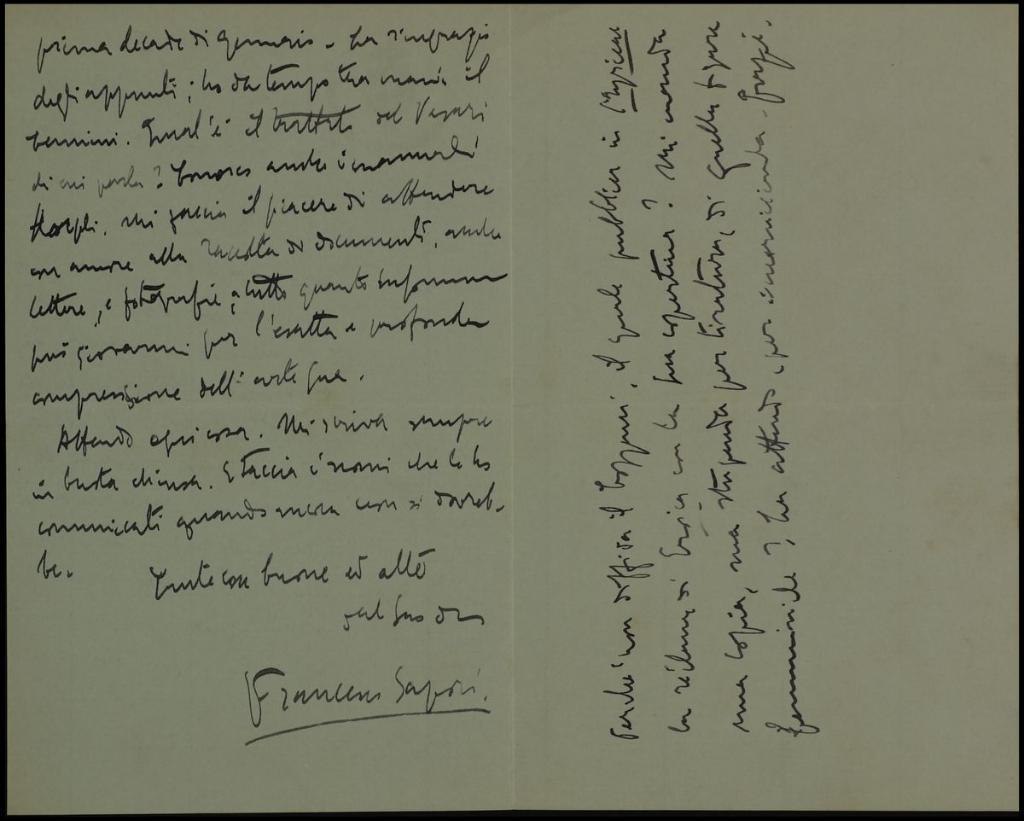 prima decade di gennaio. La ringrazio
degli appunti; ho da tempo tra mani il
bernini. Qual'è il trattato del Vasari
di cui parla? Conosco anche i manuali
Hoepli. Mi faccia il piacere di attendere
con amore alla raccolta di documenti, anche
lettere, e fotografie, a tutto quanto insomma
può giovarmi per l'esatta e profonda
comprensione dell'arte sua.
Attendo ogni cosa. Mi scriva sempre
in busta chiusa. E taccia i nomi che le ho
comunicati quando ancora non si dovreb-
be.
Tante cose buone ed alte
dal Suo
Francesco Sapori.
Perché non diffida il , il quale pubblica in
la réclame di con la sua copertina? Mi manda
una copia, ma stupenda per tiratura, di quella figura
femminile? La attendo, per incorniciarla. Grazie.